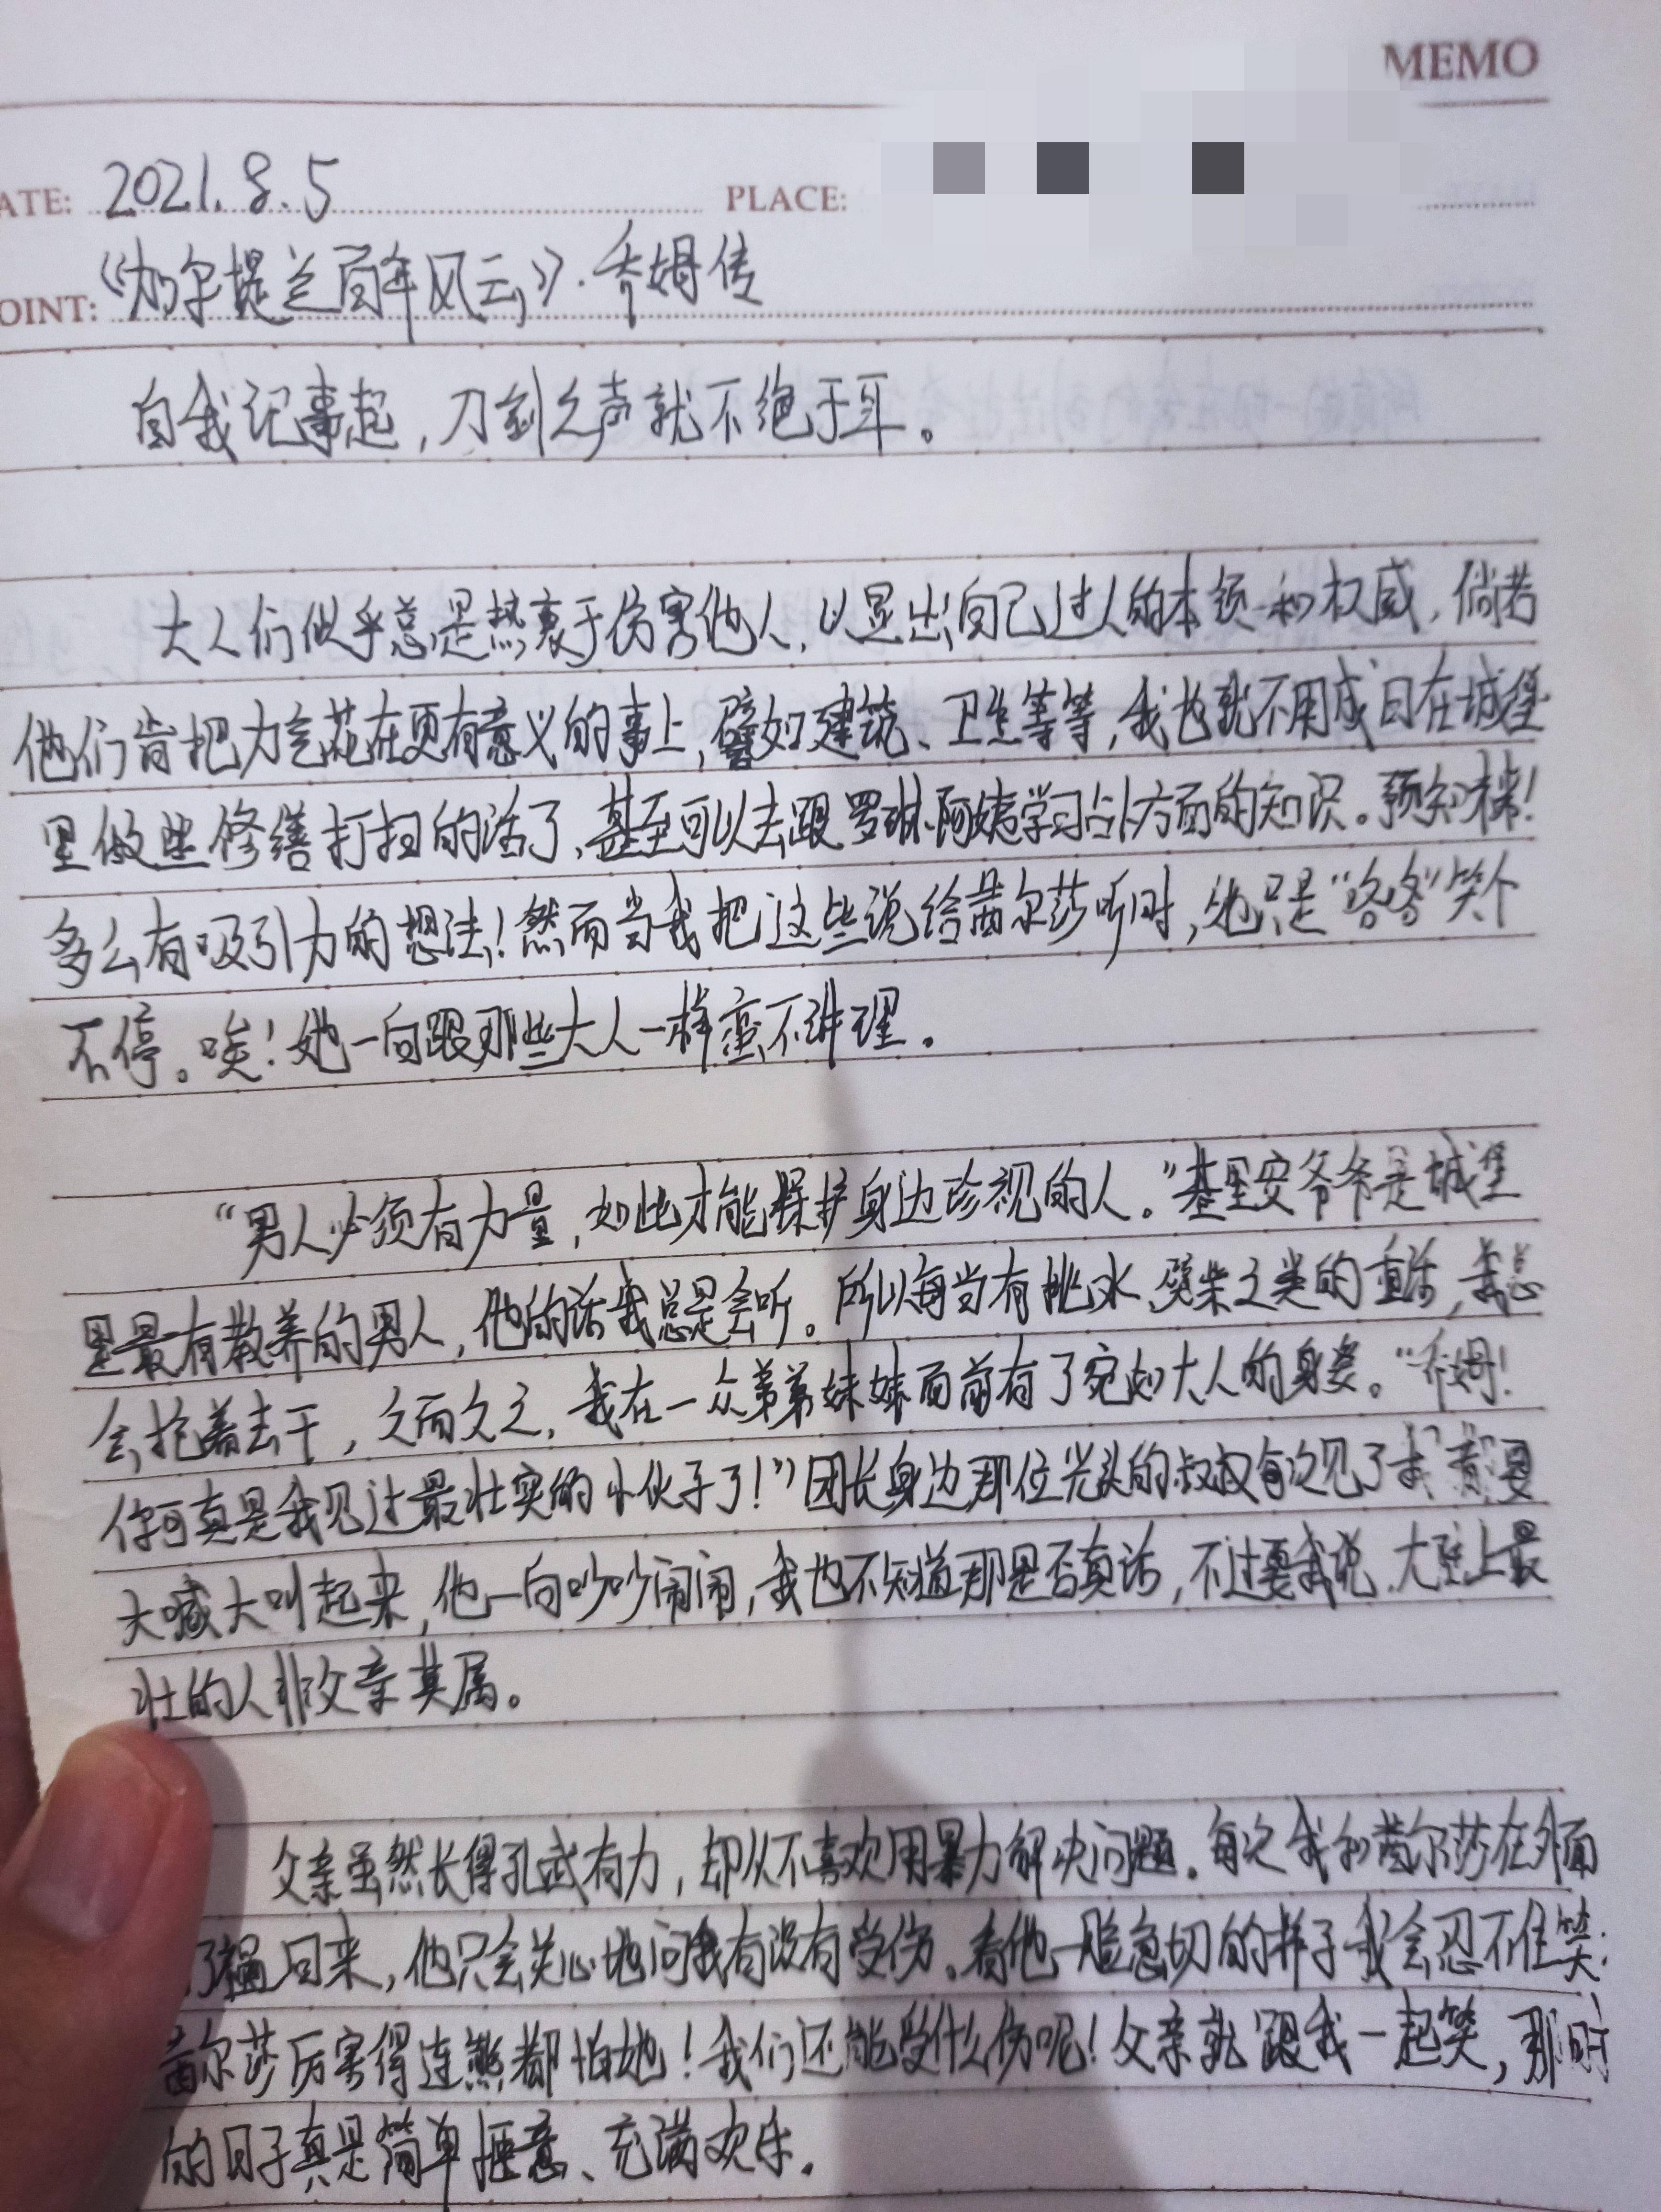 MEMO
ATE: 2021.8.5 PLACE:
OINT: 《加尔提兰百年风云》·乔姆传
自我记事起，刀剑之声就不绝于耳。
大人们似乎总是热衷于伤害他人，以显出自己过人的本领和权威，倘若
他们肯把力气花在更有意义的事上，譬如建筑、卫生等等，我也就不用成日在城堡
里做些修缮打扫的活了，甚至可以去跟罗琳阿姨学习占卜方面的知识。预知未来！
多么有吸引力的想法！然而当我把这些说给茜尔莎听时，她只是“咯咯”笑个
不停。唉！她一向跟那些大人一样蛮不讲理。
“男人必须有力量，如此才能保护身边珍视的人。”基里安爷爷是城堡
里最有教养的男人，他的话我总是会听。所以每当有挑水、劈柴之类的重活，我总
会抢着去干，久而久之，我在一众弟弟妹妹面前有了宛如大人的身姿。“乔姆！
你可真是我见过最壮实的小伙子了！”团长身边那位光头的叔叔每次见了我都要
大喊大叫起来，他一向吵吵闹闹，我也不知道那是否真话，不过要我说，大陆上最
壮的人非父亲莫属。
父亲虽然长得孔武有力，却从不喜欢用暴力解决问题。每次我和茜尔莎在外面
了祸回来，他只会关心地问我有没有受伤。看他一脸急切的样子我会忍不住笑：
茜尔莎厉害得连熊都怕她！我们还能受什么伤呢！父亲就跟我一起笑，那时
的日子真是简单惬意、充满欢乐。